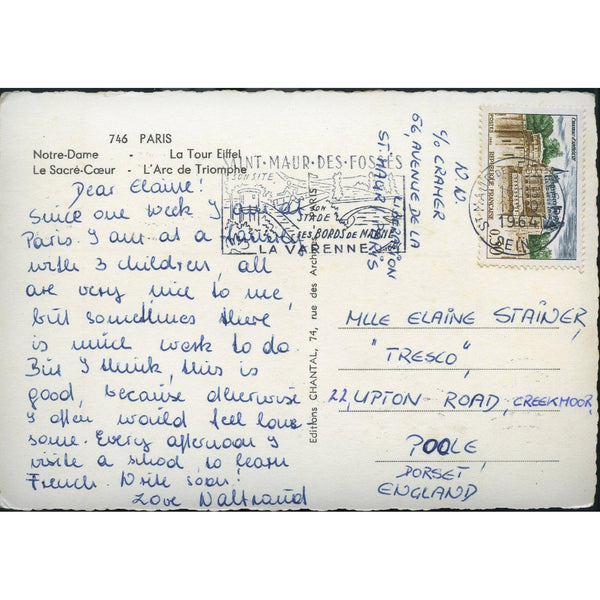 746 PARIS
Notre-Dame - La Tour Eiffel
Le Sacré-Cœur - L'Arc de Triomphe
Dear Elaine!
Since one week I am at
Paris. I am at a
with 3 children, all
are very nice to me,
but sometimes there
is much work to do.
But I think, this is
good, because otherwise
I often would feel lone
some. Every afternoon I
visite a school, to learn
French. Write soon!
Love Waltraud
Editions CHANTAL, 74, rue des Archives PARIS
SAINT-MAUR-DES-FOSSÉS
SON SITE
SON
STADE
SES BORDS DE MARNE
LA VARENNE
W.W.
c/o CRAMER
66, AVENUE DE LA
LIBERATION
ST. MAUR PARIS
POSTES
REPUBLIQUE FRANÇAISE
0,30
1964
SEINE
MLLE ELAINE STAINER,
"TRESCO",
22, UPTON ROAD, CREEKMOOR,
POOLE
DORSET
ENGLAND